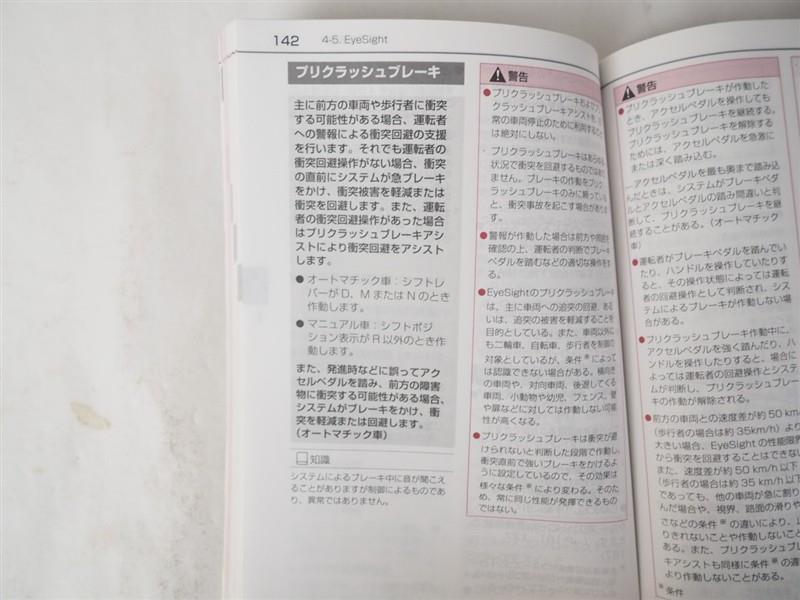 142 4-5. EyeSight
プリクラッシュブレーキ
主に前方の車両や歩行者に衝突
する可能性がある場合、運転者
への警報による衝突回避の支援
を行います。それでも運転者の
衝突回避操作がない場合、衝突
の直前にシステムが急ブレーキ
をかけ、衝突被害を軽減または
衝突を回避します。また、運転
者の衝突回避操作があった場合
はプリクラッシュブレーキアシ
ストにより衝突回避をアシスト
します。
● オートマチック車：シフトレ
バーが D、M または N のとき
作動します。
● マニュアル車：シフトポジ
ション表示が R 以外のとき作
動します。
また、発進時などに誤ってアク
セルペダルを踏み、前方の障害
物に衝突する可能性がある場合、
システムがブレーキをかけ、衝
突を軽減または回避します。
（オートマチック車）
知識
システムによるブレーキ中に音が聞こえ
ることがありますが制御によるものであ
り、異常ではありません。
警告
●プリクラッシュブレーキおよびプ
リクラッシュブレーキアシストを、
常の車両停止のために利用すること
は絶対にしない。
プリクラッシュブレーキはあらゆる
状況で衝突を回避するものではあり
ません。ブレーキの作動をプリク
ラッシュブレーキのみに頼っている
と、衝突事故を起こす場合がありま
す。
●警報が作動した場合は前方や周囲を
確認の上、運転者の判断でブレーキ
ペダルを踏むなどの適切な操作を
する。
●EyeSightのプリクラッシュブレーキ
は、主に車両への追突の回避、ある
いは、追突の被害を軽減することを
目的としている。また、車両以外に
も二輪車、自転車、歩行者を制御の
対象としているが、条件※によって
は認識できない場合がある。横向き
の車両や、対向車両、後退してくる
車両、小動物や幼児、フェンス、壁
や扉などに対しては作動しない可能
性が高くなる。
●プリクラッシュブレーキは衝突が避
けられないと判断した段階で作動し、
衝突直前で強いブレーキをかけるよ
うに設定しているので、その効果は
様々な条件※により変わる。そのた
め、常に同じ性能が発揮できるもの
ではない。
警告
●プリクラッシュブレーキが作動した
とき、アクセルペダルを操作しても
プリクラッシュブレーキを継続する。
プリクラッシュブレーキを解除する
ためには、アクセルペダルを急激に
または深く踏み込む。
－アクセルペダルを最も奥まで踏み込
んだときは、システムがブレーキペダ
ルとアクセルペダルの踏み間違いと判
断して、プリクラッシュブレーキを継
続することがある。（オートマチック
車）
●運転者がブレーキペダルを踏んでい
たり、ハンドルを操作していたりす
ると、その操作状態によっては運転
者の回避操作として判断され、シス
テムによるブレーキが作動しない場
合がある。
●プリクラッシュブレーキ作動中に、
アクセルペダルを強く踏んだり、ハ
ンドルを操作したりすると、場合に
よっては運転者の回避操作とシステ
ムが判断し、プリクラッシュブレー
キの作動が解除される。
●前方の車両との速度差が約 50 km/
（歩行者の場合は約 35km/h）より
大きい場合、EyeSight の性能限界
から衝突を回避することはできない
また、速度差が約 50 km/h 以下
（歩行者の場合は約 35 km/h 以下
であっても、他の車両が急に割り
んだ場合や、視界、路面の滑りや
さなどの条件※の違いにより、止
りきれないことや作動しないこと
ある。また、プリクラッシュブレー
キアシストも同様に条件※の違
より作動しないことがある。
※ 条件